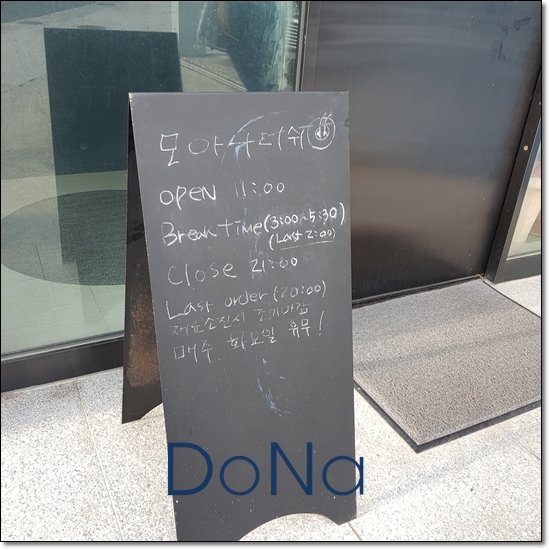 모아나티쉬
OPEN 11:00
Break time (3:00~5:30)
(Last 2:00)
Close 21:00
Last order (20:00)
재료소진시 조기마감
매주 화요일 휴무!
DoNa